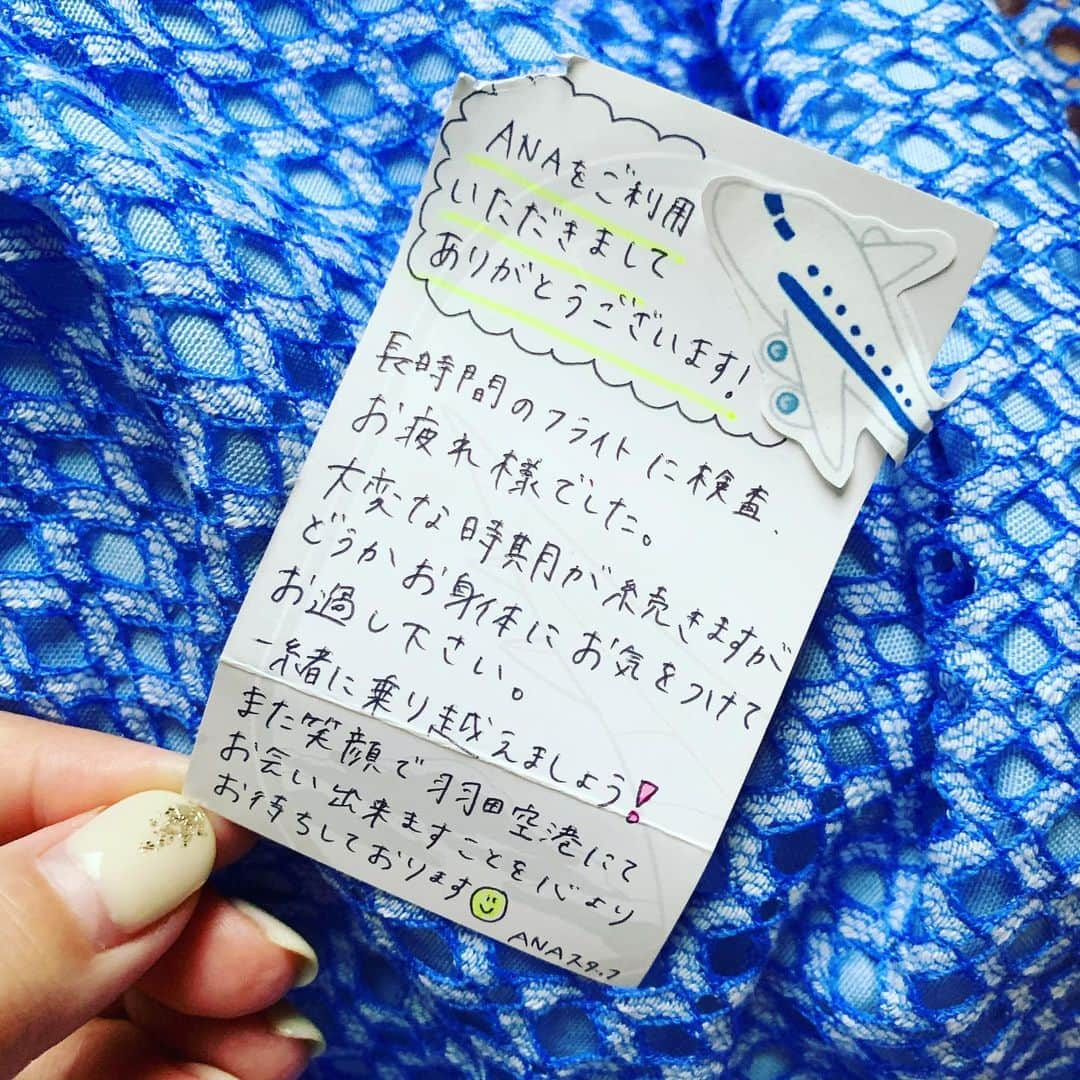 ANAをご利用
いただきまして
ありがとうございます!
長時間のフライトに検査、
お疲れ様でした。
大変な時期が続きますが
どうかお身体にお気をつけて
お過し下さい。
一緒に乗り越えましょう!
また笑顔で羽田空港にて
お会い出来ますことを心より
お待ちしております
ANAスタッフ